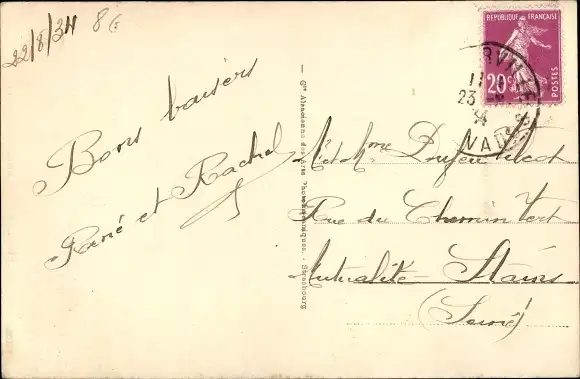 22/8/34
Bons baisers
René et Rachel
Cie Alsacienne des Arts Photomécaniques, Strasbourg
RÉPUBLIQUE FRANÇAISE
20c
POSTES
23
M et Mme
Rue du Chemin Vert
Mutualité - Stains
(Seine)